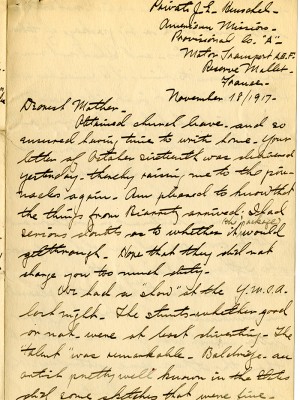 Private J.E. Henschel.
American Mission.
Provisional Co. "A"
Motor Transport A.E.F.
Reserve Mallet.
France.
November 18/1917.
Dearest Mother.
Obtained church leave and so
ensured having time to write home. Your
letter of October sixteenth was received
yesterday thereby raising me to the pin-
nacles again. Am pleased to know that
the things from Biarritz arrived; I had
serious doubts as to whether the package would
get through. Hope that they did not
charge you too much duty.
We had a "show" at the Y.M.C.A.
last night. The stunts whether good
or not, were at least diverting. The
"talent" was remarkable. Baldridge an
artist pretty well known in the States
did some sketches that were fine.